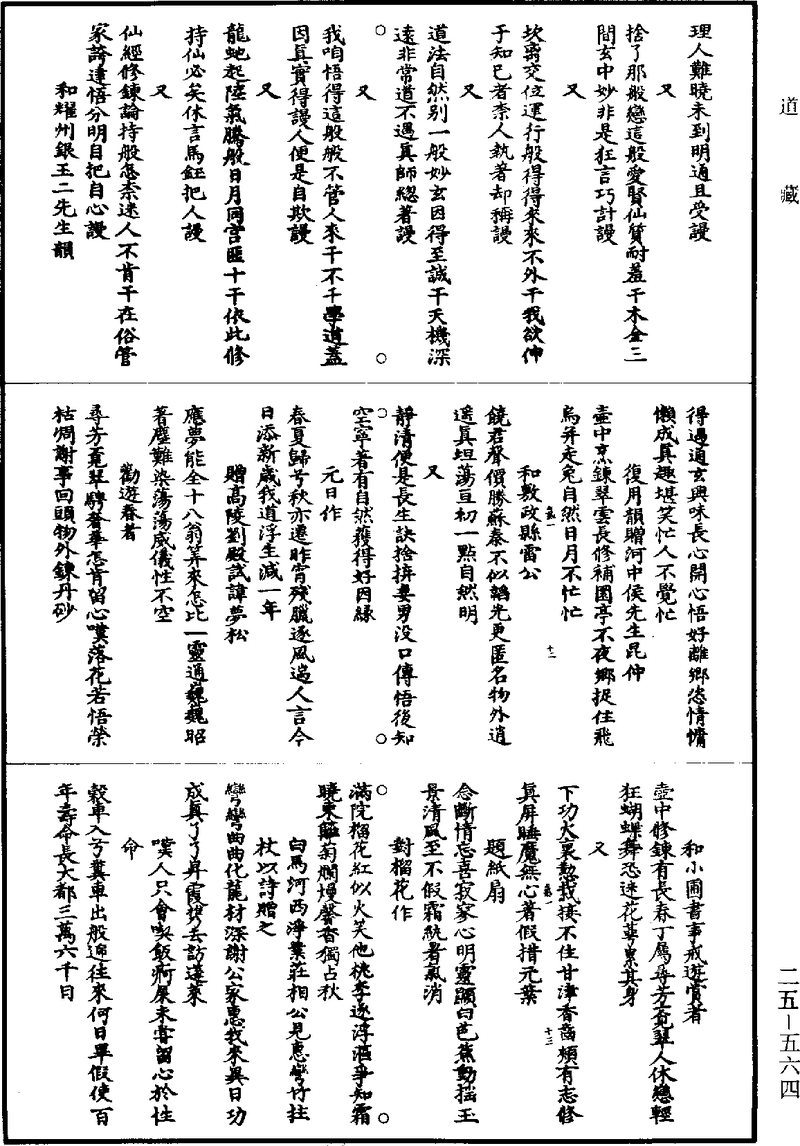 道藏
理人難曉未到明通且受謾
又
捨了那般戀這般愛賢仙質耐蓋干木金三
間玄中妙非是狂言巧計謾
又
坎离交位運行般得得來來不外干我欲伸
于知己者柰人執著却稱謾
又
道法自然别一般妙玄因得至誠干天機深
遠非常道不遇真師總著謾
又
我咱悟得這般般不管人來干不干學道蓋
因真實得謾人便是自欺謾
又
龍虵起陸氣騰般日月同宫匪十干依此修
持仙必矣休言馬鈺把人謾
又
仙經修鍊論持般怎柰迷人不肯干在俗管
家誇達悟分明自把自心謾
和耀州銀王二先生韻
得遇通玄興味長心開心悟好離鄉恣情慵
懶成真趣堪笑忙人不覺忙
復用韻贈河中侯先生昆仲
壺中烹鍊翠雲長修補園亭不夜鄉捉住飛
烏并走兔自然日月不忙忙
和敷政縣雷公
饒君聲價勝蘇秦不似韜光更匿名物外逍
遥真坦蕩亘初一點自然明
又
靜清便是長生訣捨擠妻男没口傳悟後知
空寧著有自然獲得好因緣
元日作
春夏歸兮秋亦遷昨宵殘臘逐風遄人言今
日添新歲我道浮生減一年
贈高陵劉殿試諱夢松
應夢能全十八翁筭來怎比一靈通巍巍昭
著塵難染蕩蕩威儀性不空
勸遊春者
尋芳覔翠騁奢華怎肯留心嘆落花若悟榮
枯凋謝事回頭物外鍊丹砂
和小圃書事戒遊賞者
壺中修鍊有長春丁屬尋芳覔翠人休戀輕
狂蝴蝶舞恐迷花蕚累其身
又
下功火裏懃栽接不住甘津香齒頰有志修
真屏睡魔無心著假措元葉
題紙扇
念斷情忘喜寂寥心明靈顯白芭蕉動摇玉
景清風至不假霜紈暑氣消
對榴花作
滿院榴花紅似火笑他桃李逐浮漚爭知霜
曉東籬菊爛熳馨香獨占秋
白馬河西淨業莊相公見惠彎竹拄
杖以詩贈之
彎彎曲曲化龍材深謝公家惠我來異日功
成真了了昇霞携去訪蓬萊
嘆人只會喫飯痾屎未嘗留心於性
命
穀車入兮糞車出般遞往來何日畢假使百
年壽命長大都三萬六千日
二五－五六四